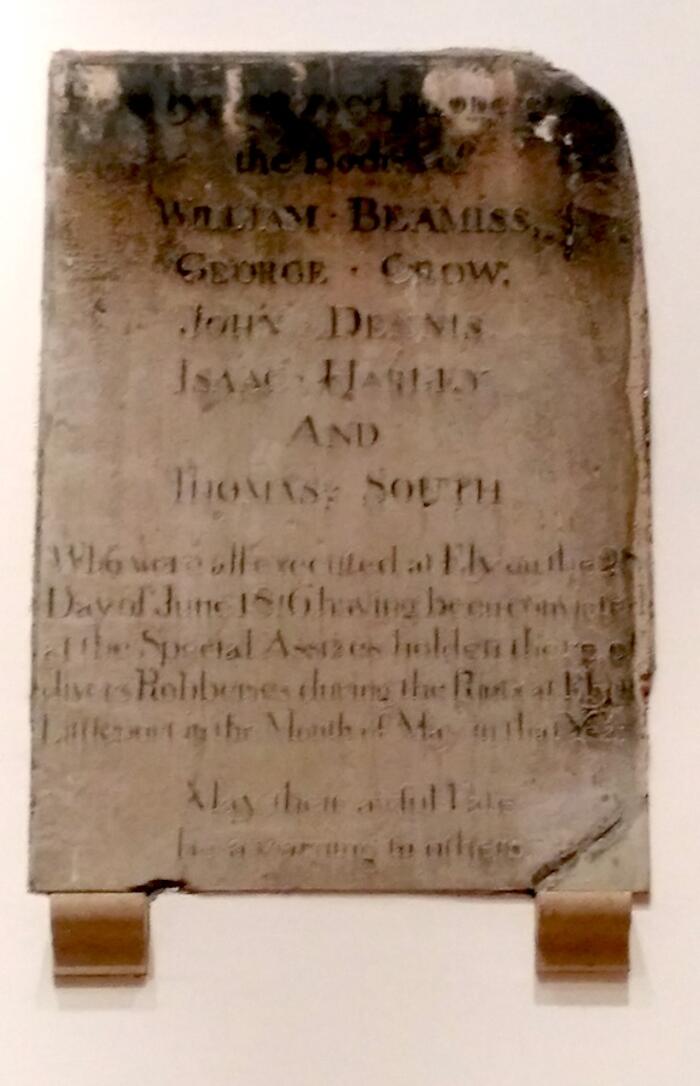 Here lye interred in one grave
the Bodies of
WILLIAM · BEAMISS,
GEORGE · CROW,
JOHN DENNIS
ISAAC · HARLEY
AND
THOMAS · SOUTH
Who were all executed at Ely on the 28
Day of June 1816 having been convicted
at the Special Assizes holden there of
divers Robberies during the Riots at Ely &
Littleport in the Month of May in that Year
May their awful Fate
be a warning to others